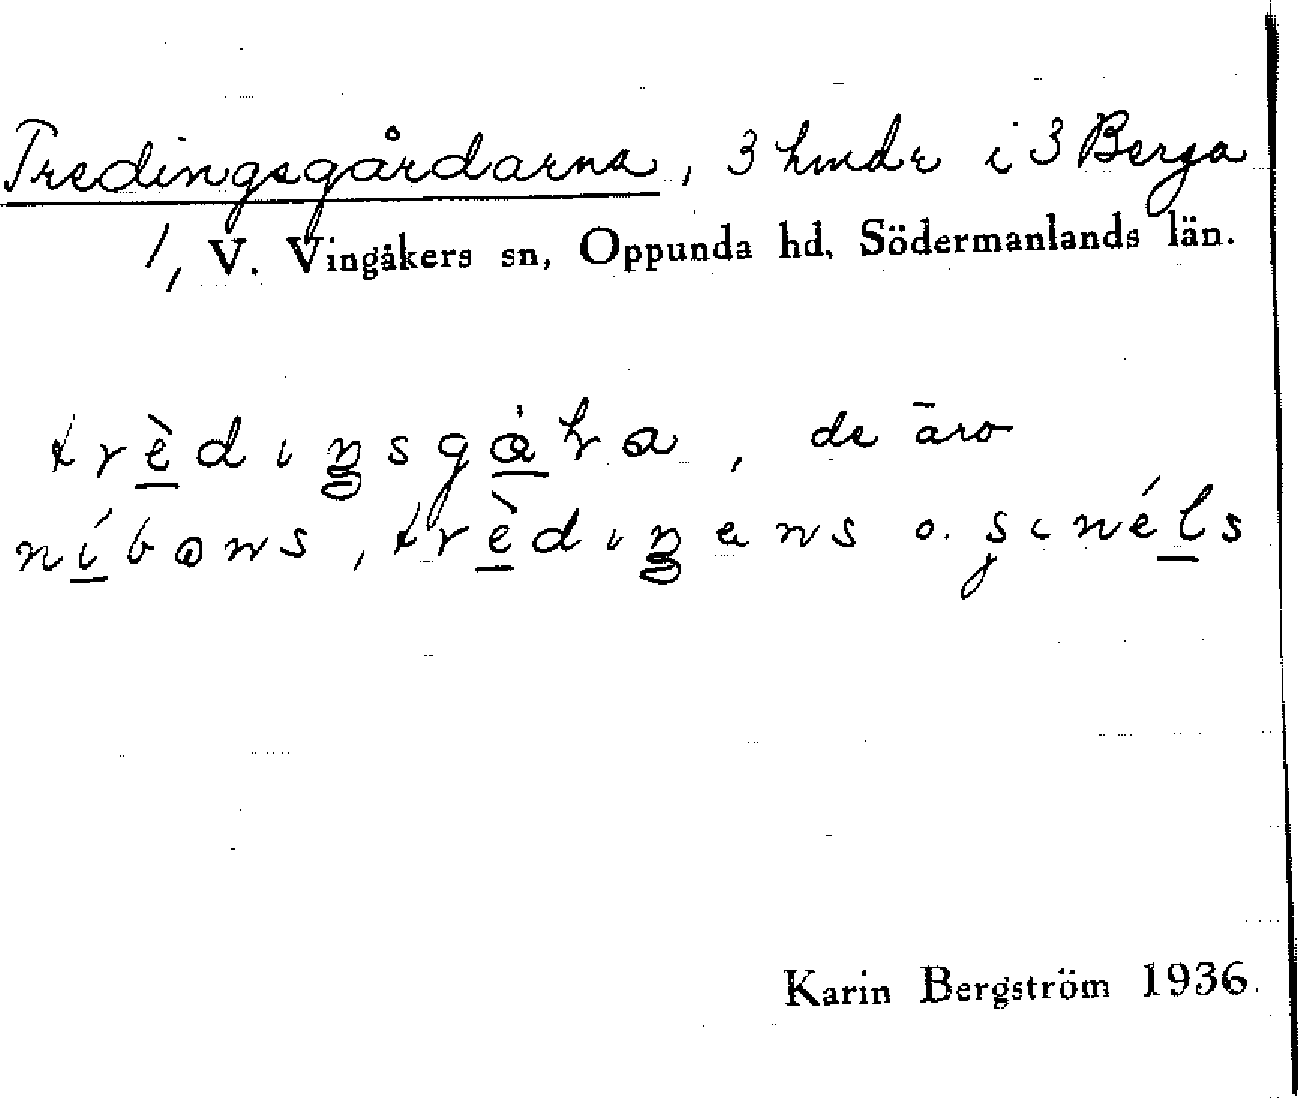 Tredingsgårdarna, 3 hmdr i 3 Berga
1, V. Vingåkers sn, Oppunda hd, Södermanlands län.
trèdıŋsgàɽa, de äro
níbǝns, trèdıŋens o. ʂınéls
Karin Bergström 1936.